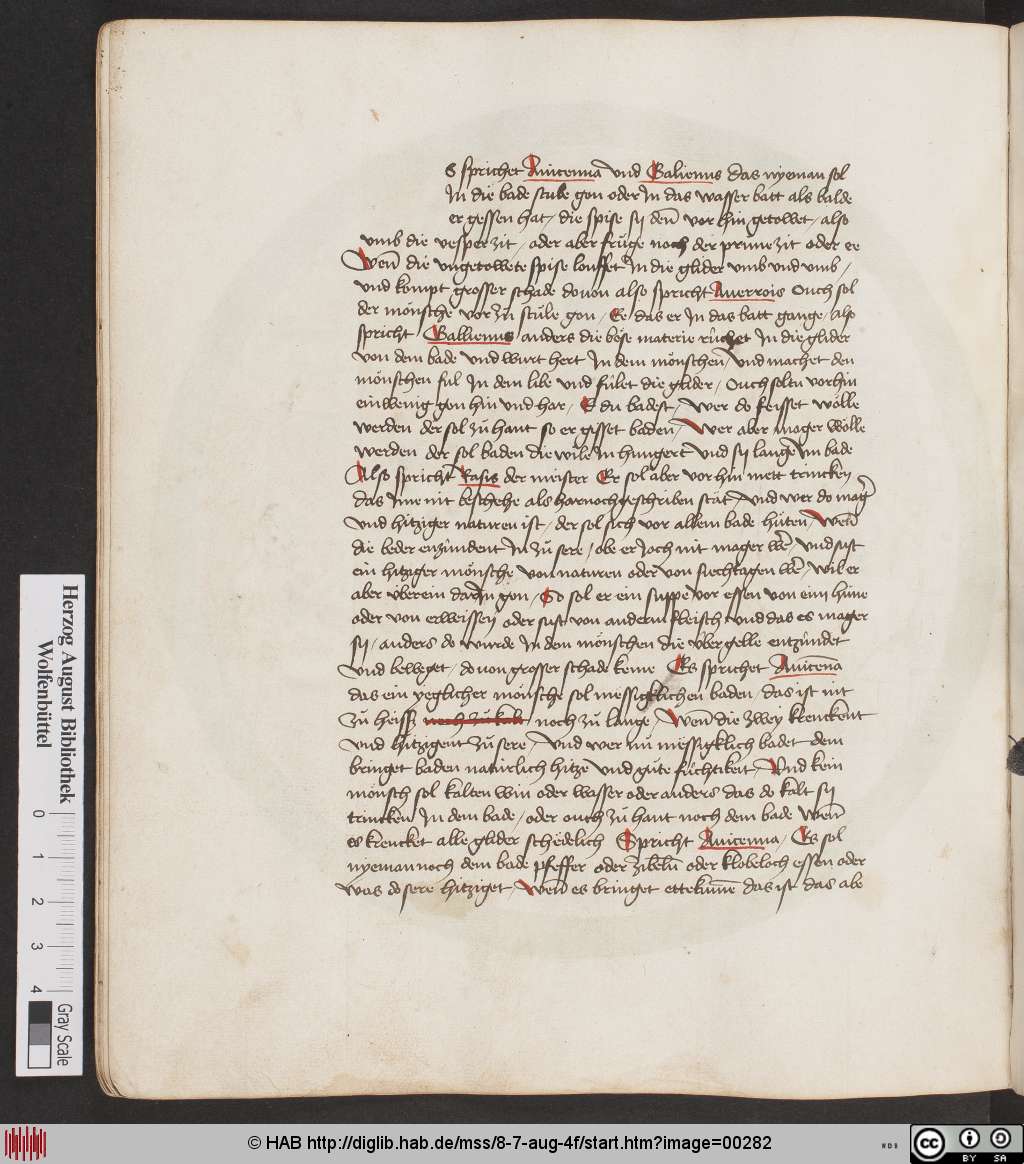 s sprichet Auicenna vnd Galienus das nyeman sol
In die bade stube gon oder In das wasser batt als balde
er gessen hat / die spise sij deñ vor hin getowet / also
vmb die vesper zit / oder aber fruͤge noch der prime zit oder ee
Weñ die vngetowete spise louffet In die glider vmb vnd vmb /
vnd kompt grosser schade douon also spricht Auerrois Ouch sol
der moͤnsche vor zu stule gon / Ee das er In das batt gange / also
spricht Gallienus anders die boͤse materie ruͤchet In die glider
von dem bade vnd wurt hert In dem moͤnschen / vnd machet den
moͤnschen ful In dem libe vnd fulet die glider / Ouch soltu vorhin
ein wenig gon hin vnd har / E du badest / Wer do feisset woͤlle
werden der sol zu hant so er gisset baden / Wer aber mager woͤlle
werden der sol baden die wile In hungert vnd sij lange im bade
Also spricht Rasis der meister Er sol aber vor hin mett trincken
das Ime nit beschehe als harnoch geschriben stat / vnd wer do mag̃
vnd hitziger naturen ist / der sol sich vor allem bade huͤten / Weñ
die beder enzundent In zu sere / obe er Joch nit mager wẽ / vnd sust
ein hitziger moͤnsche von naturen oder von siechtagen wẽ / wil er
aber vberein dar In gon / So sol er ein suppe vor essen von eim huͤne
oder von erweissen oder sust von anderm fleisch vnd das es mager
sij / anders do wurde In dem moͤnschen die vbergelle entzundet
vnd beweget / douon grosser schade keme Es sprichet Auicena
das ein yeglicher moͤnsche sol messigklichen baden / das ist nit
zu heiss noch zu kalt noch zu lange / Weñ die zwey krenckent
vnd hitzigent zu sere / vnd wer nu messigklich badet dem
bringet baden naturlich hitze vnd gute fuchtikeit / Vnd kein
moͤnsch sol kalten win oder wasser oder anders das do kalt sij
trincken In dem bade / oder ouch zu hant noch dem bade Weñ
es krencket alle glider schedelich Spricht Auicenna / Es sol
nyeman noch dem bade pfeffer oder zibelñ oder klobeloch essen oder
was do sere hitziget / Weñ es bringet das ist das abe
© HAB http://diglib.hab.de/mss/8-7-aug-4f/start.htm?image=00282
Herzog August Bibliothek
Wolfenbüttel
0 1 2 3 4
Gray Scale
WDB
CC BY SA